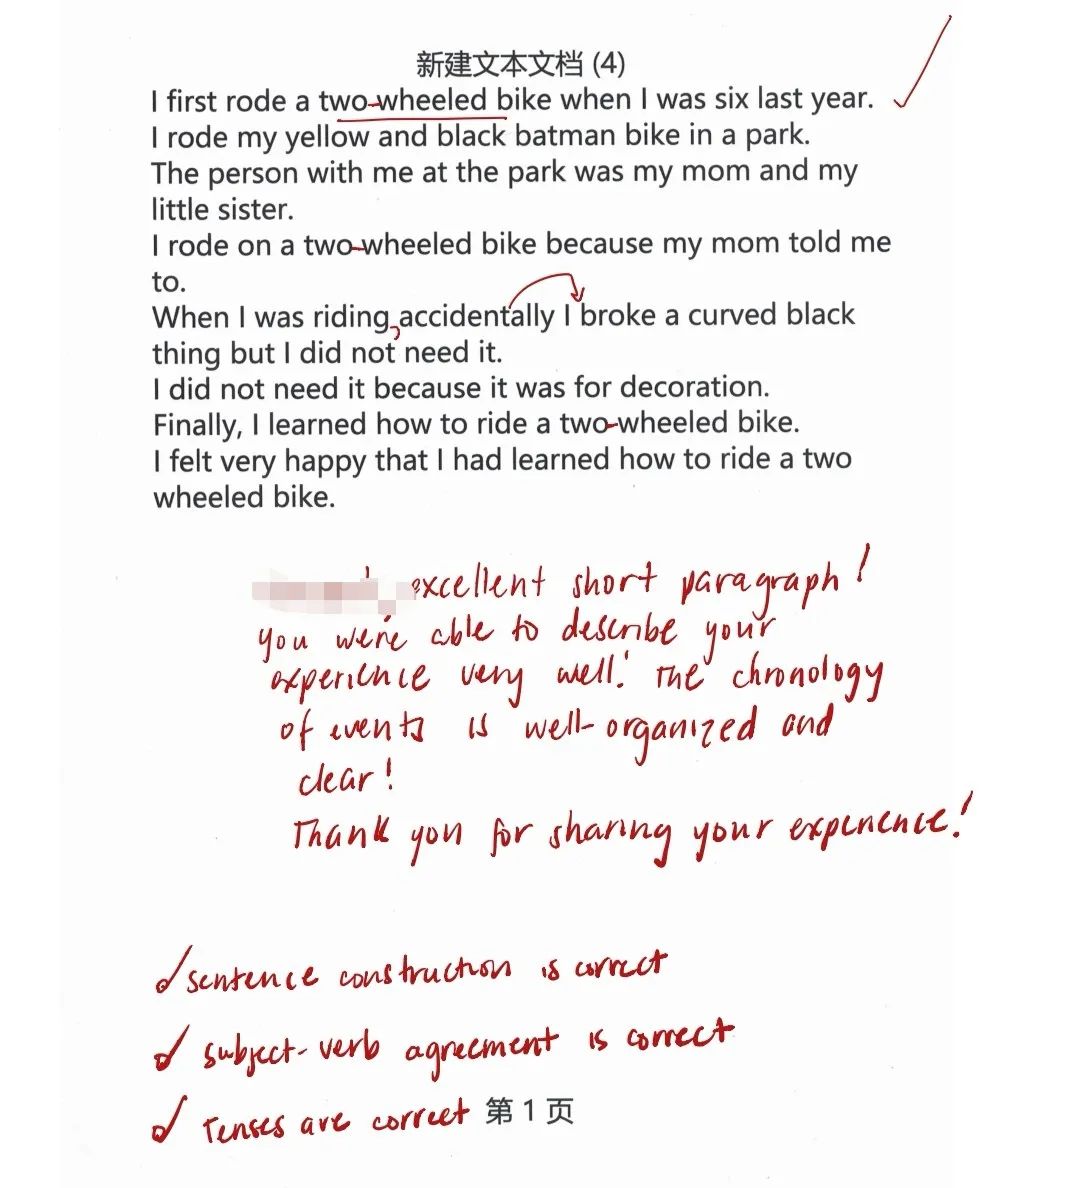 新建文本文档 (4)
I first rode a two-wheeled bike when I was six last year.
I rode my yellow and black batman bike in a park.
The person with me at the park was my mom and my
little sister.
I rode on a two-wheeled bike because my mom told me
to.
When I was riding, accidentally I broke a curved black
thing but I did not need it.
I did not need it because it was for decoration.
Finally, I learned how to ride a two-wheeled bike.
I felt very happy that I had learned how to ride a two
wheeled bike.
excellent short paragraph!
You were able to describe your
experience very well! The chronology
of events is well-organized and
clear!
Thank you for sharing your experience!
sentence construction is correct
subject-verb agreement is correct
Tenses are correct 第 1 页